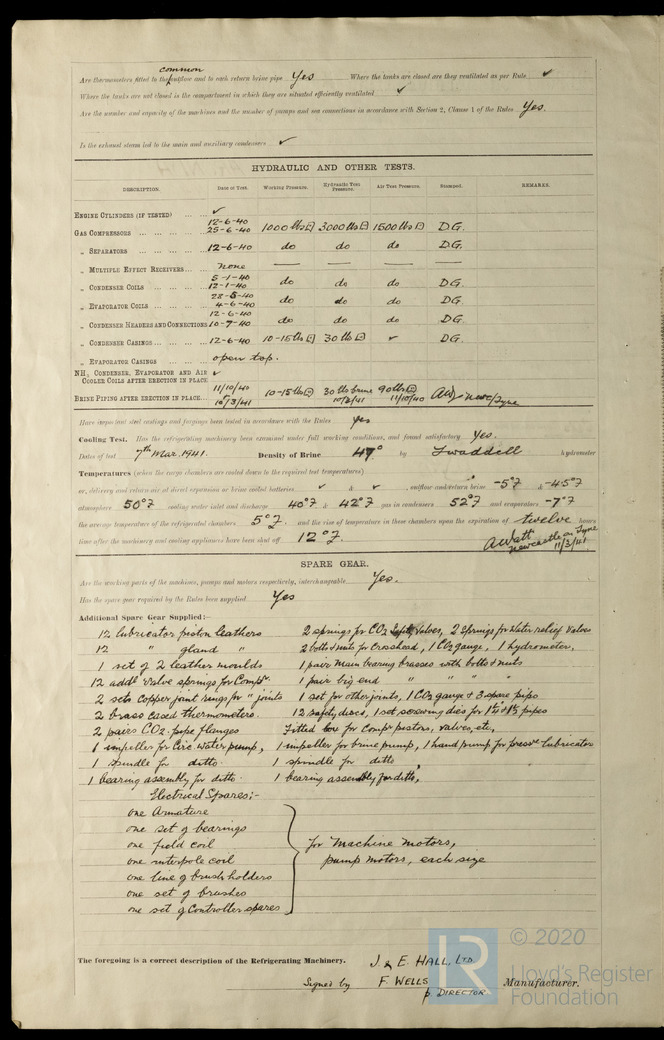 common
Are thermometers fitted to the outflow and to each return brine pipe Yes Where the tanks are closed are they ventilated as per Rule ✓
Where the tanks are not closed is the compartment in which they are situated efficiently ventilated ✓
Are the number and capacity of the machines and the number of pumps and sea connections in accordance with Section 2, Clause 1 of the Rules Yes.
Is the exhaust steam led to the main and auxiliary condensers ✓
HYDRAULIC AND OTHER TESTS.
DESCRIPTION. Date of Test. Working Pressure. Hydraulic Test Pressure. Air Test Pressure. Stamped. REMARKS.
ENGINE CYLINDERS (IF TESTED) ... ✓
12-6-40
GAS COMPRESSORS ... 25-6-40 1000 lbs 3000 lbs 1500 lbs D.G.
„ SEPARATORS ... 12-6-40 do do do D.G.
„ MULTIPLE EFFECT RECEIVERS ... none — — — —
5-1-40
„ CONDENSER COILS ... 12-1-40 do do do D.G.
28-5-40
„ EVAPORATOR COILS ... 4-6-40 do do do D.G.
12-6-40
„ CONDENSER HEADERS AND CONNECTIONS 10-7-40 do do do D.G.
„ CONDENSER CASINGS ... 12-6-40 10-15 lbs 30 lbs ✓ D.G.
„ EVAPORATOR CASINGS ... open top.
NH₃ CONDENSER, EVAPORATOR AND AIR ✓
COOLER COILS AFTER ERECTION IN PLACE
11/10/40
BRINE PIPING AFTER ERECTION IN PLACE ... 10/3/41 10-15 lbs 30 lbs brine 10/3/41 90 lbs 11/10/40 AW Newc/Tyne
Have important steel castings and forgings been tested in accordance with the Rules yes
Cooling Test. Has the refrigerating machinery been examined under full working conditions, and found satisfactory Yes.
Dates of test 7th Mar. 1941. Density of Brine 47° by Twaddell hydrometer
Temperatures (when the cargo chambers are cooled down to the required test temperatures)
or, delivery and return air at direct expansion or brine cooled batteries ✓ & ✓, outflow and return brine -5°F & -4.5°F
atmosphere 50°F cooling water inlet and discharge 40°F & 42°F gas in condensers 52°F and evaporators -7°F
the average temperature of the refrigerated chambers 5°F. and the rise of temperature in these chambers upon the expiration of twelve hours
time after the machinery and cooling appliances have been shut off 12°F.
A Watt
Newcastle on Tyne
11/3/41
SPARE GEAR.
Are the working parts of the machines, pumps and motors respectively, interchangeable Yes.
Has the spare gear required by the Rules been supplied Yes
Additional Spare Gear Supplied:—
12 lubricator piston leathers 2 springs for CO2 Safety Valves, 2 springs for Water relief Valves
12 " gland " 2 bolts & nuts for Crosshead, 1 CO2 gauge, 1 hydrometer,
1 set of 2 leather moulds 1 pair Main bearing brasses with bolts & nuts
12 addl valve springs for Compr. 1 pair big end " " " "
2 sets copper joint rings for " joints 1 set for other joints, 1 CO2 gauge & 3 spare pipes
2 brass cased thermometers. 12 safety discs, 1 set screwing dies for 1¼ & 1½ pipes
2 pairs CO2 pipe flanges Fitted box for Compr pistons, valves, etc,
1 impeller for Circ. water pump, 1 impeller for brine pump, 1 hand pump for pressre lubricator
1 spindle for ditto. 1 spindle for ditto
1 bearing assembly for ditto. 1 bearing assembly for ditto,
Electrical Spares;-
one Armature
one set of bearings
one field coil for Machine motors,
one interpole coil pump motors, each size
one line of brush holders
one set of brushes
one set of Controller spares
The foregoing is a correct description of the Refrigerating Machinery. J. & E. HALL, LTD
Signed by F. WELLS Manufacturer.
p. DIRECTOR.
LR
© 2020
Lloyd's Register
Foundation